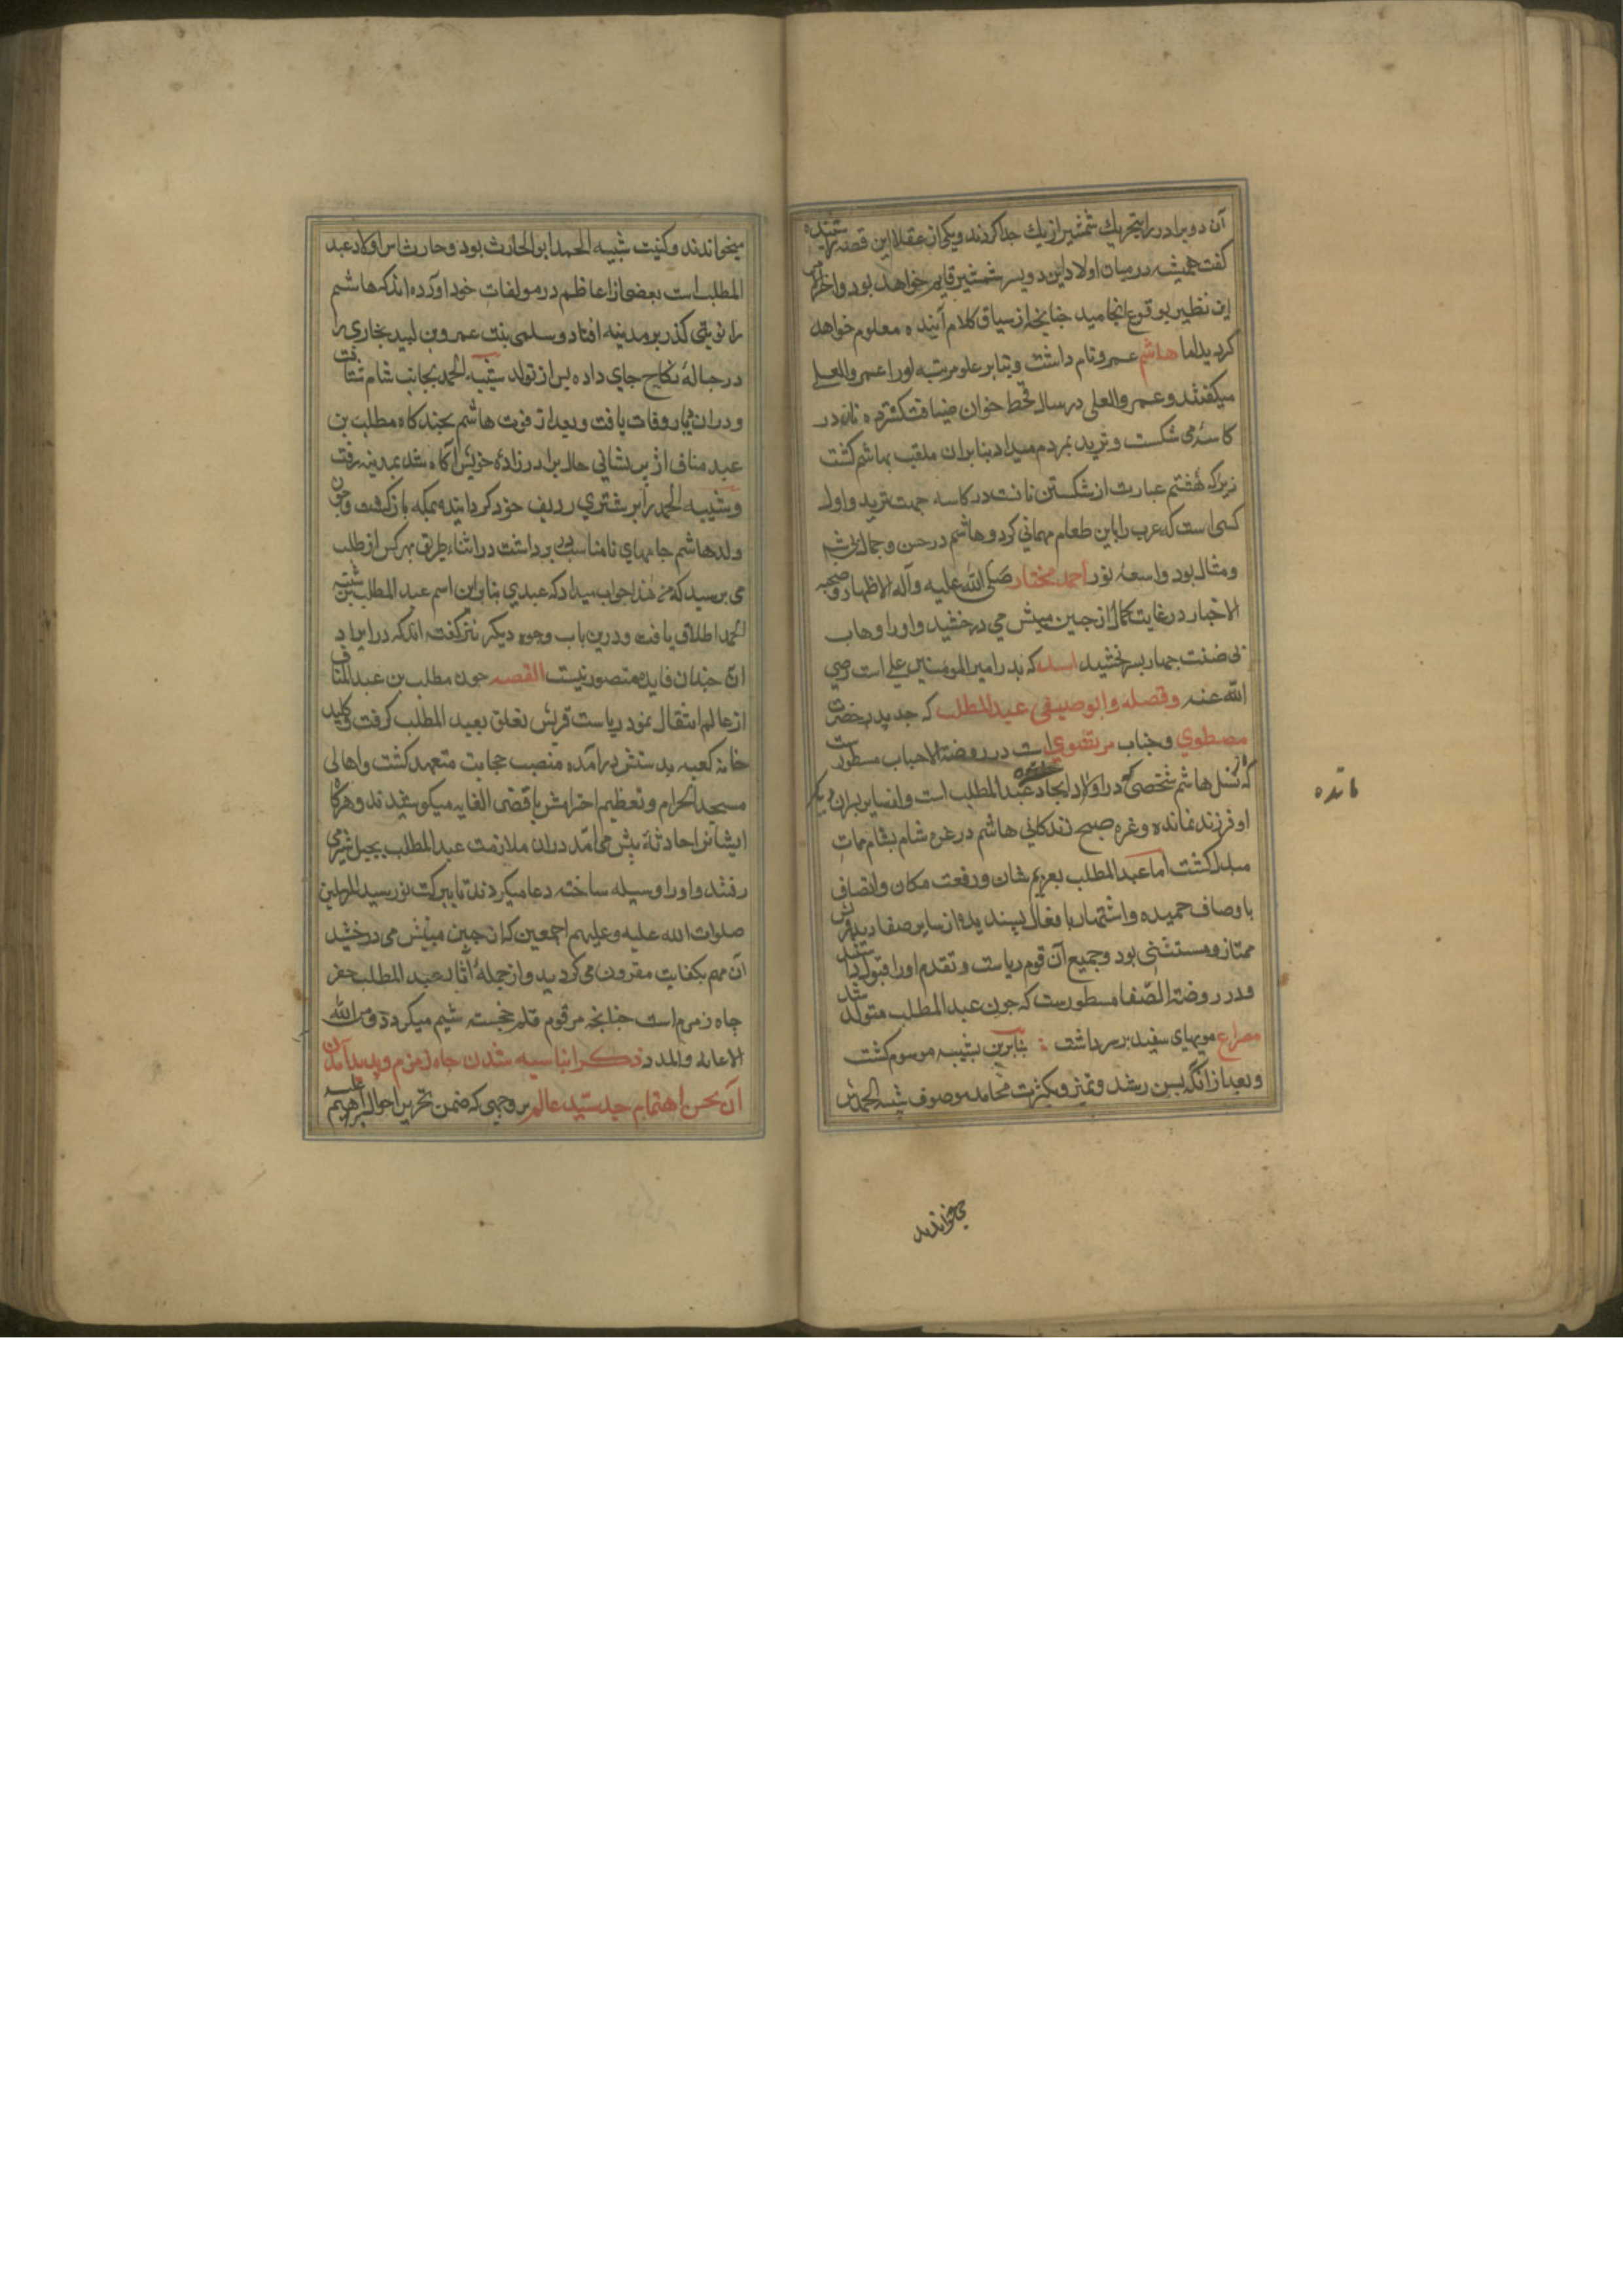 آن دو برادر را بتحریك شمشیر از یك جدا كردند و یكی از عقلا این قصه را شنیده
كفت همیشه در میان اولاد این دو پسر شمشیر قایم خواهد بود و اخر
این نظیر بوقوع انجامید چنانچه از سیاق كلام آینده معلوم خواهد
كردید اما هاشم عمرو نام داشت و بنابر علو مرتبه اورا عمرو العلی
میكفتند و عمرو العلی در سال قحط خوان ضیافت كسترده نان در
كاسه می شكست و ترید بمردم میداد بنابران ملقب بهاشم كشت
زیراكه هشم عبارت از شكستن نانست در كاسه جهت ترید و اول
كسی است كه عرب را باین طعام مهمانی كرد و هاشم در حسن و جمال بی شبه
و مثال بود و اسعه نور احمد مختار صلی الله علیه وآله الاطهار و صحبه
الاخیار در غایت كمال از جبین مبینش می درخشید و اورا وهاب
بی ضنت چهار پسر بخشید اسد كه پدر امیر المومنین علی است رضی
الله عنه و فضله و ابو صیفی عبد المطلب كه جد پدر حضرت
مصطفوی و جناب مرتضوی است در روضة الاحباب مسطور ست
كه از نسل هاشم شخصی كه در اولاد امجاد عبد المطلب است و از سایر پسران دیكر
او فرزند نمانده و غره صبح زندكانی هاشم در غزه شام بشام ممات
مبدل كشت اما عبد المطلب بعزیم شان و رفعت مكان و اتصاف
باوصاف حمیده و اشتهار بافعال پسندیده از سایر صنادید قریش
ممتاز و مستثنی بود و جمیع آن قوم ریاست و تقدم اورا قبول داشتند
و در روضة الصفا مسطورست كه چون عبد المطلب متولد شد
مصراع مویهای سفید بر سر داشت بنابرین بشیبه موسوم كشت
و بعد از انكه بسن رشد و تمیز و بكثرت محامد موصوف شیبة الحمدش
میخواندند
مانده
میخواندند و كنیت شیبه الحمد ابو الحارث بود و حارث اسن اولاد عبد
المطلب است بعضی از اعاظم در مولفات خود اورده اند كه هاشم
را نوبتی كذر بر مدینه افتاد و سلمی بنت عمرو بن لبید بخاری را
در حبالهٔ نكاح جای داده پس از تولد شیبه الحمد بجانب شام شتافت
و دران دیار وفات یافت و بعد از فوت هاشم بچند كاه مطلب بن
عبد مناف از پریشانی حال برادر زادهٔ خویش آكاه شد بمدینه رفت
و شیبه الحمد را بر شتری ردیف خود كردانیده بمكه بازكشت و چون
ولد هاشم جامهای نامناسب در بر داشت در اثناء طریق هر كس از مطلب
می پرسید كه من هذا جواب میداد كه عبدی بنابراین اسم عبد المطلب بر شیبة
الحمد اطلاق یافت و درین باب وجوه دیكر نیز كفته اند كه در ایراد
ان چندان فایده متصور نیست القصه چون مطلب بن عبد المناف
از عالم انتقال نمود ریاست قریش تعلق بعبد المطلب كرفت و كلید
خانه كعبه بدستش درآمده منصب حجابت متعهد كشت و اهالی
مسجد الحرام و تعظیم احترامش باقصی الغایه میكوشیدند و هركاه
ایشانرا حادثهٔ پیش می آمد دران ملازمت عبد المطلب بجبل ثبیر می
رفتند و اورا وسیله ساخته دعا میكردند تا ببركت نور سید المرسلین
صلوات الله علیه و علیهم اجمعین كه از جبین مبینش می درخشید
آن مهم بكفایت مقرون می كردید و از جمله آثار عبد المطلب حفر
چاه زمزم است چنانچه مرقوم قلم خجسته شیم میكردد و من الله
الاعانه والمدد ذكر انباسیه شدن چاه زمزم و پدید آمدن
آن بحسن اهتمام جد سید عالم بر وجهی كه ضمن تحریر احوال ابراهیم علیه